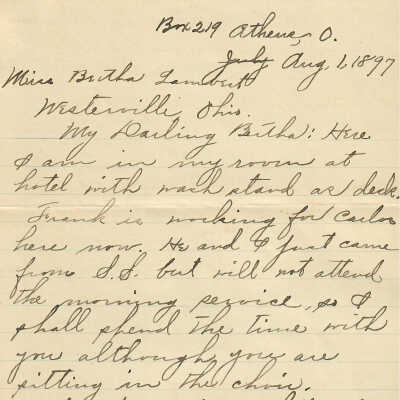 Box 219 Athens, O.
July Aug, 1, 1897
Miss Bertha Lambert
Westerville, Ohio.
My Darling Bertha: Here
I am in my room at
hotel with wash stand as desk.
Frank is working for Carlos
here now. He and I just came
from S.S. but will not attend
the morning service, so I
shall spend the time with
you although you are
sitting in the choir.